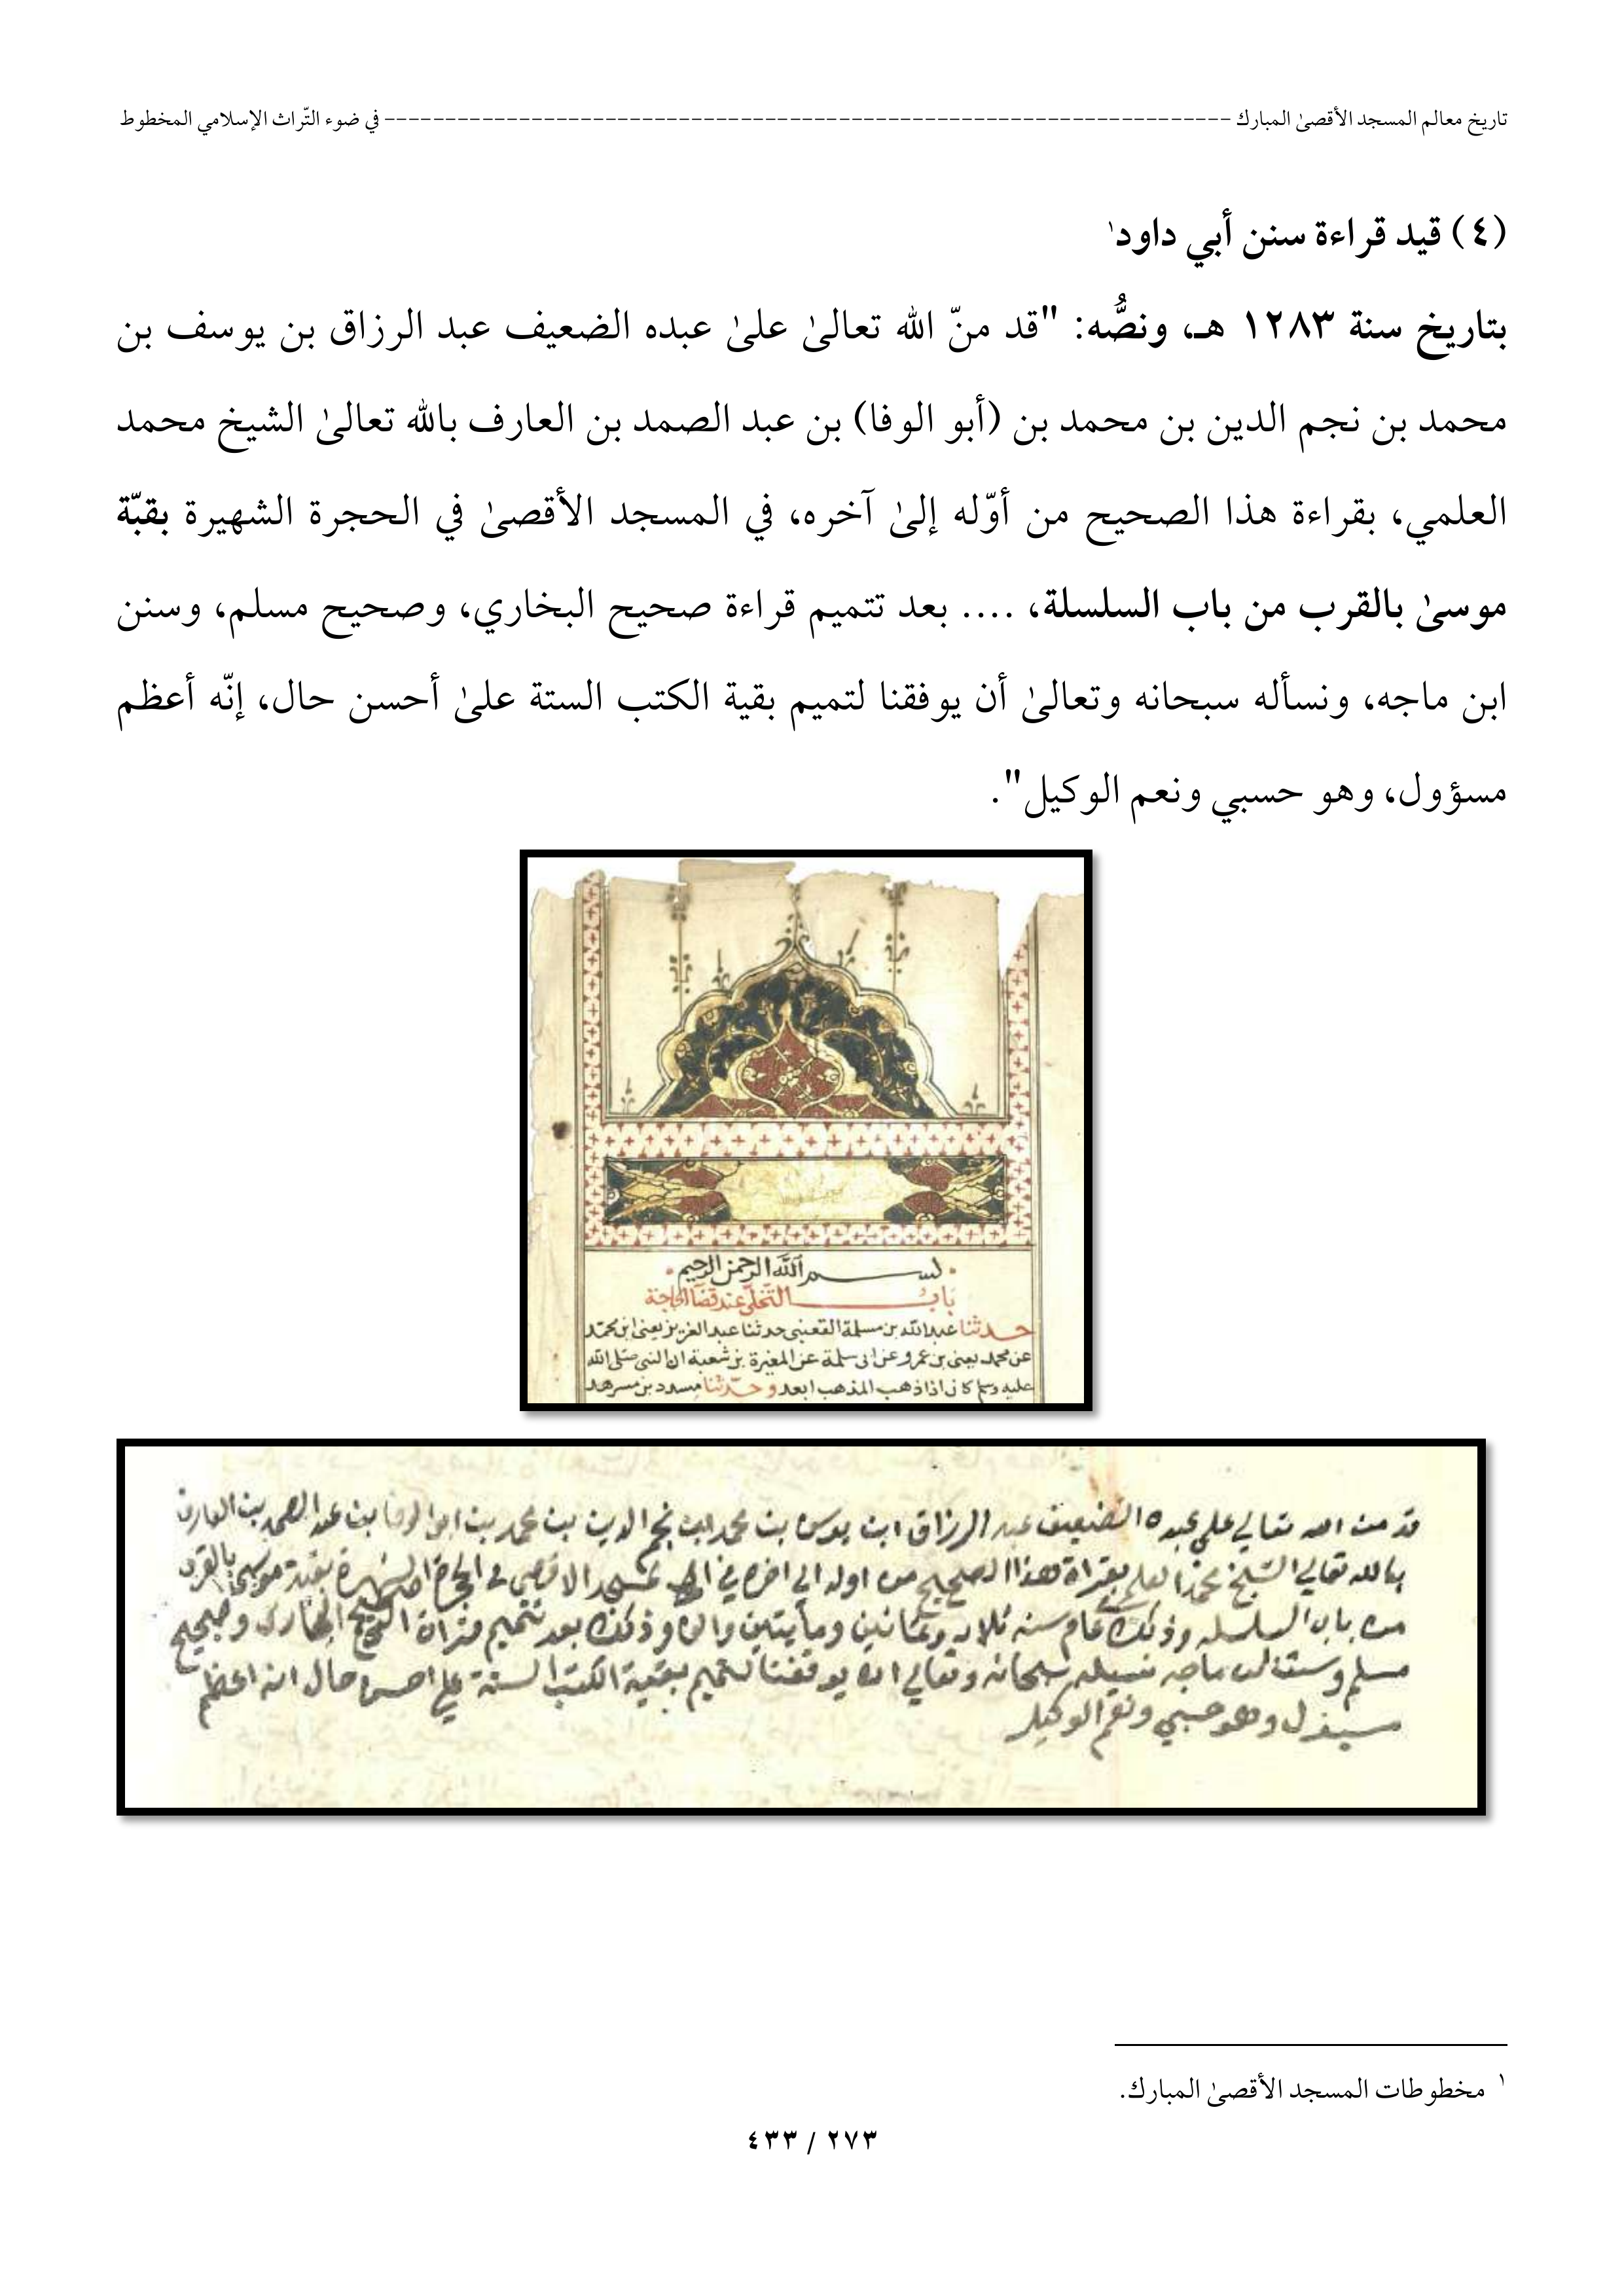 تاريخ معالم المسجد الأقصىٰ المبارك ---------------------------------------------------------------------- في ضوء التّراث الإسلامي المخطوط
(٤) قيد قراءة سنن أبي داود١
بتاريخ سنة ١٢٨٣ هـ، ونصُّه: "قد منّ الله تعالىٰ علىٰ عبده الضعيف عبد الرزاق بن يوسف بن
محمد بن نجم الدين بن محمد بن (أبو الوفا) بن عبد الصمد بن العارف بالله تعالىٰ الشيخ محمد
العلمي، بقراءة هذا الصحيح من أوّله إلىٰ آخره، في المسجد الأقصىٰ في الحجرة الشهيرة بقبّة
موسىٰ بالقرب من باب السلسلة، .... بعد تتميم قراءة صحيح البخاري، وصحيح مسلم، وسنن
ابن ماجه، ونسأله سبحانه وتعالىٰ أن يوفقنا لتميم بقية الكتب الستة علىٰ أحسن حال، إنّه أعظم
مسؤول، وهو حسبي ونعم الوكيل".
بسم الله الرحمن الرحيم
باب التخلي عند قضا الحاجة
حدثنا عبد الله بن مسلمة القعنبي حدثنا عبد العزيز يعني ابن محمد
عن محمد يعني بن عمرو عن ابى سلمة عن المغيرة بن شعبة ان النبي صلى الله
عليه وسلم كان اذا ذهب المذهب ابعد وحدثنا مسدد بن مسرهد
قد من الله تعالي علي عبده الضعيف عبد الرزاق ابن يوسف بن محمد ابن نجم الدين بن محمد بن ابو الوفا بن عبد الصمد بن العارف
بالله تعالي الشيخ محمد العلمي بقراة هذا الصحيح من اوله الي اخره في المسجد الاقصي في الحجرة الشهيرة بقبة موسي بالقرب
من باب السلسله وذلك عام سنه ثلاث وثمانين ومأيتين والف وذلك بعد تتميم قراة البخاري وصحيح
مسلم وسنن ابن ماجه نسيله سبحانه وتعالي ان يوفقنا لتميم بقية الكتب الستة علي احسن حال انه اعظم
مسيول وهو حسبي ونعم الوكيل
١ مخطوطات المسجد الأقصىٰ المبارك.
٢٧٣ / ٤٣٣